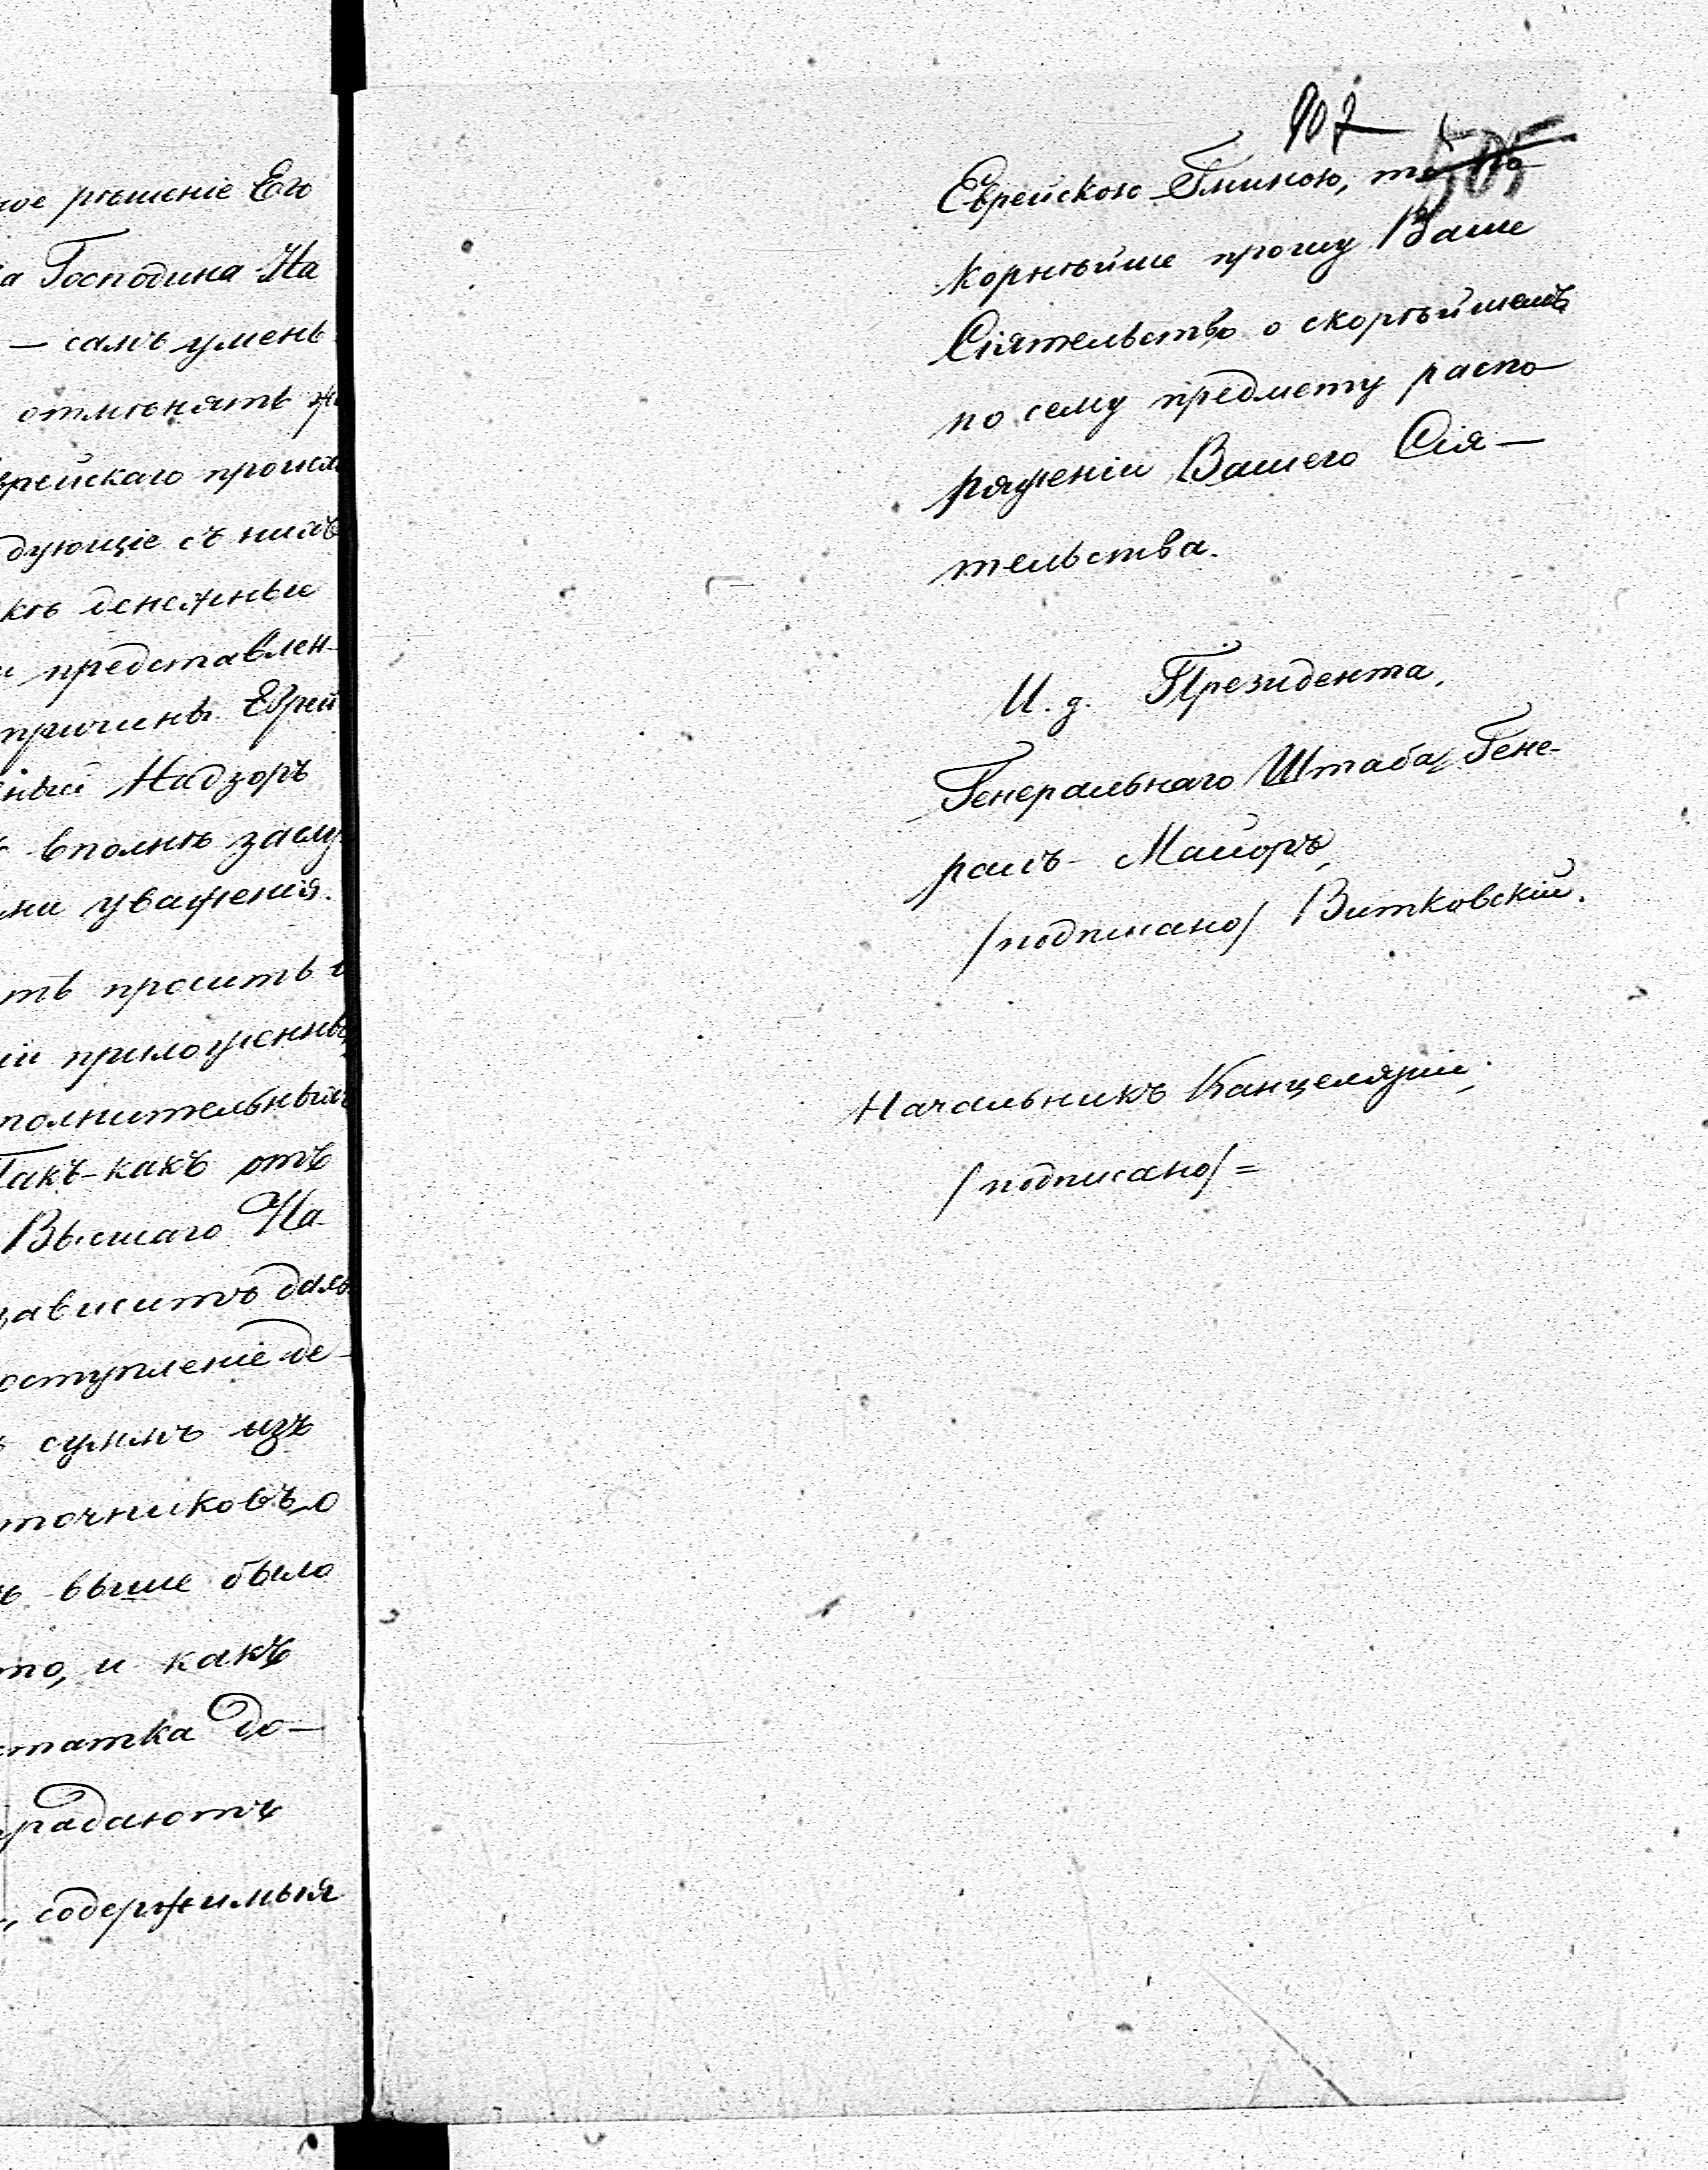 ное рѣшеніе Его
а Господина На
— самъ умень
отмѣнять
врейскаго происх
дующіе съ нимъ
денежныя
представлен-
причинъ Еврей
ный Надзоръ
вполнѣ заслу
уваженія.
ть просить
іи приложенны
полнительный
Такъ-какъ отъ
Высшаго На-
зависитъ даль
оступленіе де-
суммъ изъ
точниковъ, о
ъ выше было
то, и какъ
статка до—
традаютъ
, содержимыя
907
505
Еврейскою Гминою, то по
корнѣйше прошу Ваше
Сіятельство о скорѣйшемъ
по сему предмету распо
ряженіи Вашего Сія—
тельства.
И. д. Президента,
Генеральнаго Штаба, Гене-
ралъ-Маіоръ,
/подписано/ Витковскій.
Начальникъ Канцеляріи,
/подписано/ =